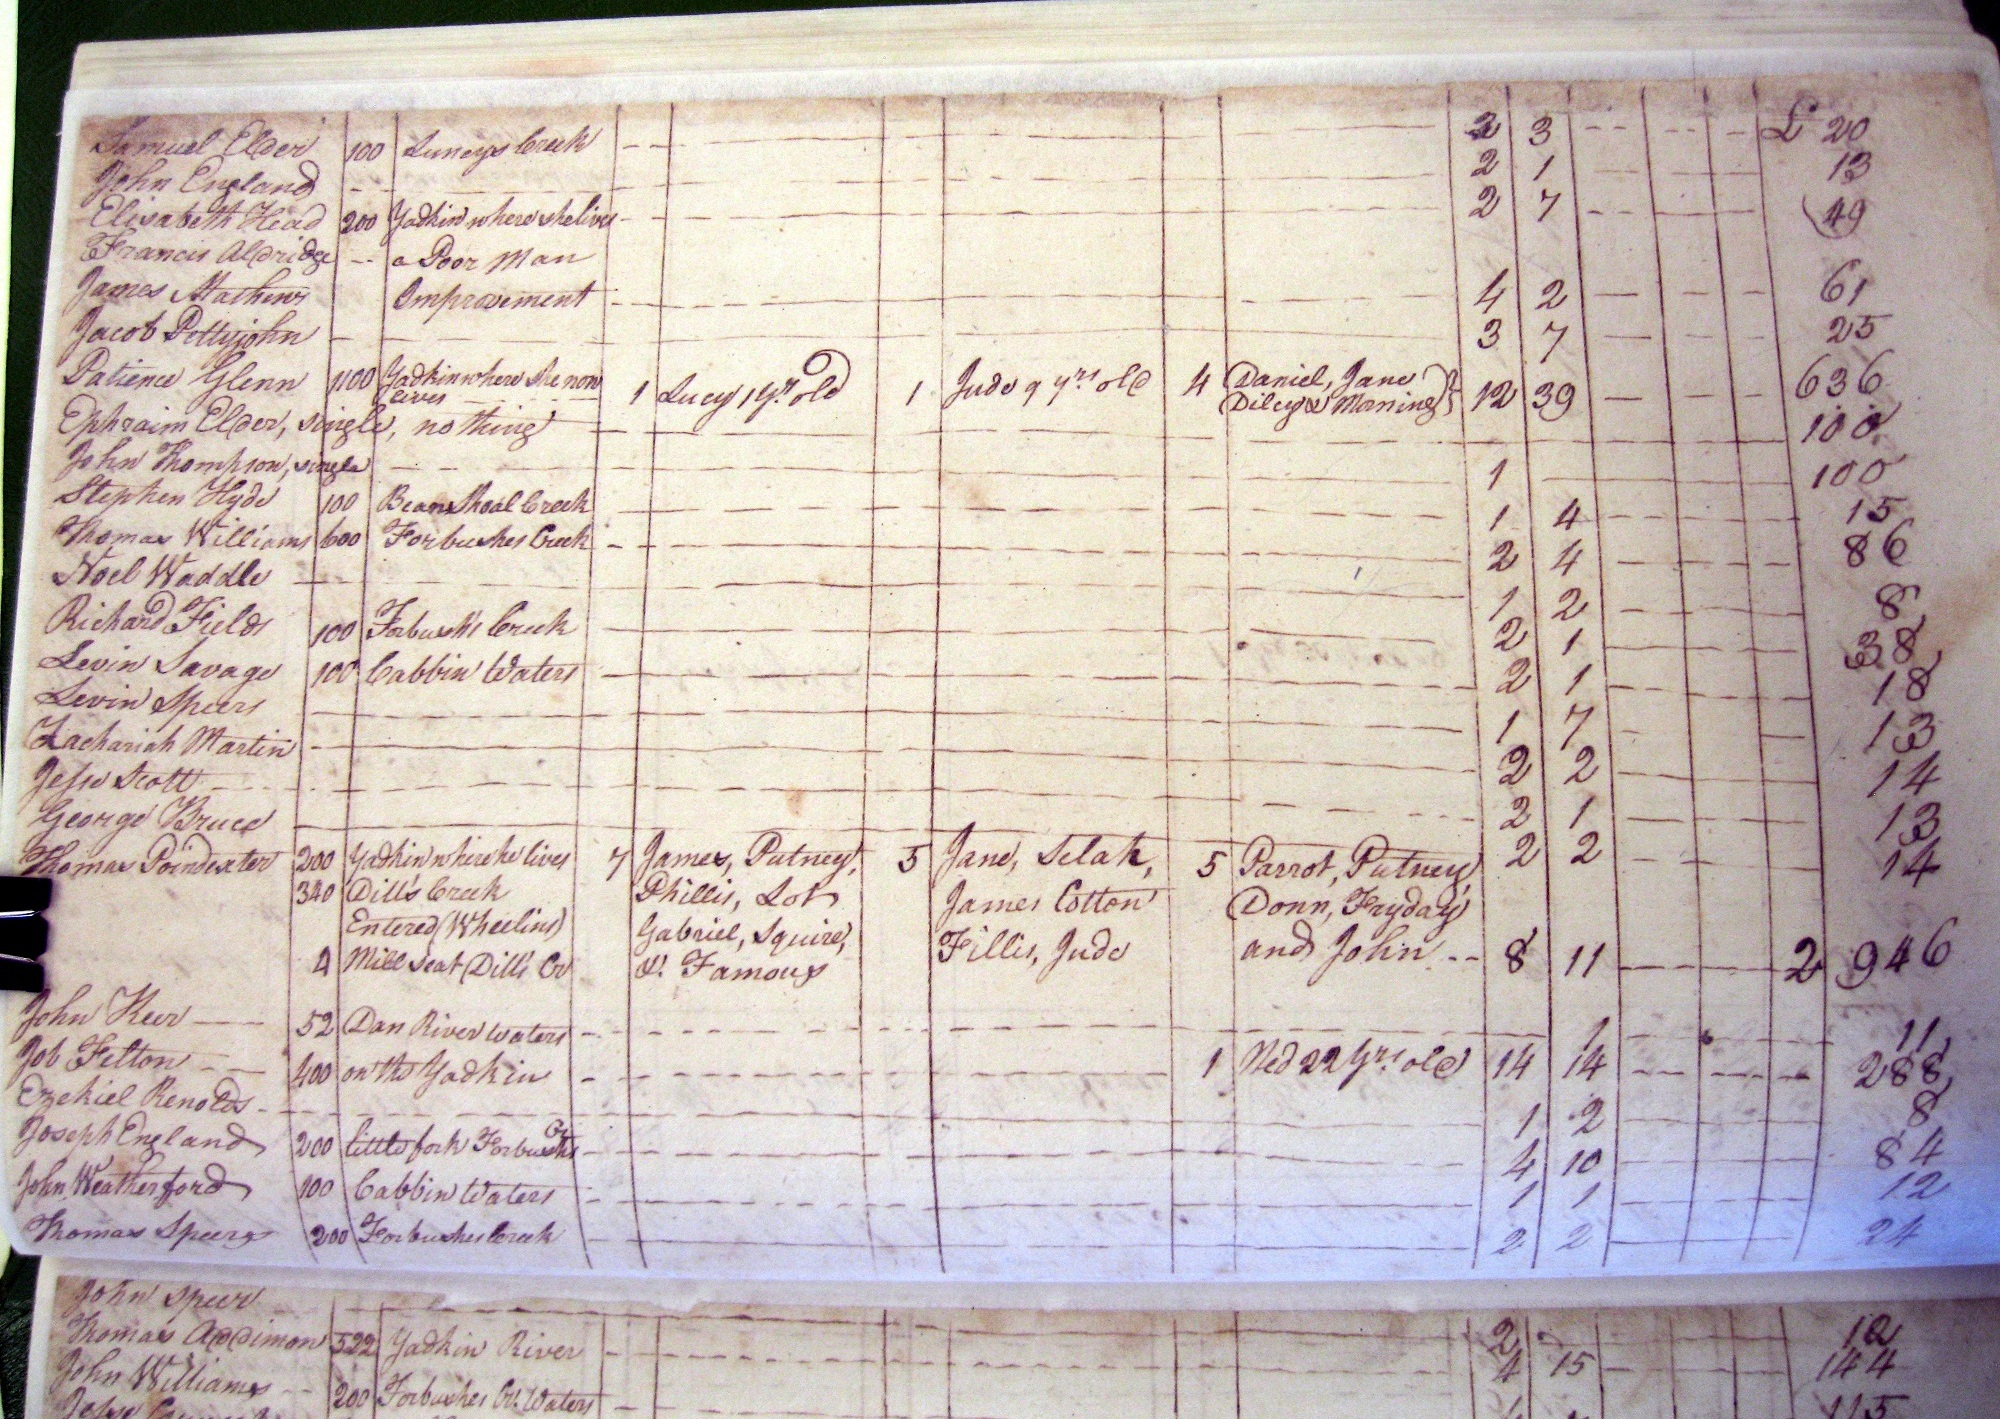 Samuel Elder 100 Luneys Creek 2 3 £ 20
John England 2 1 13
Elisabeth Head 200 Yadkin where she lives 2 7 49
Francis Aldridge a Poor Man
James Mathews Improvement 4 2 61
Jacob Pettyjohn 3 7 25
Patience Glenn 1100 Yadkin where she now lives 1 Lucy 1 Yr. old 1 Jude 9 yrs old 4 Daniel, Jane Dilcy & Morning 12 39 636
Ephraim Elder, single, nothing 100
John Thompson, single 1 100
Stephen Hyde 100 Bean Shoal Creek 1 4 15
Thomas Williams 600 Forbushes Creek 2 4 86
Noel Waddle 1 2 8
Richard Fields 100 Forbush's Creek 2 1 38
Levin Savage 100 Cabbin Waters 2 1 18
Levin Speers 1 7 13
Zachariah Martin 2 2 14
Jesse Scott 2 1 13
George Bruce 2 2 14
Thomas Poindexter 200 Yadkin where he lives 7 James, Putney, 5 Jane, Selah, 5 Parrot, Putney,
340 Dill's Creek Phillis, Lot James Cotton Donn, Fryday
Entered (Wheelins) Gabriel, Squire, Fillis, Jude and John 8 11 2 946
4 Mill seat Dills Cr &. Famous
John Keer 52 Dan River waters 1 11
Job Felton 400 on the Yadkin 1 Ned 22 Yrs. old 14 14 288
Ezekiel Renolds 1 2 8
Joseph England 200 little fork Forbushs Cr 4 10 84
John Weatherford 100 Cabbin Waters 1 1 12
Thomas Speers 200 Forbushes Creek 2 2 24
John Speer 2
Thomas Addimon 522 Yadkin River 4 15 144
John Williams 200 Forbushes Cr. Waters 115